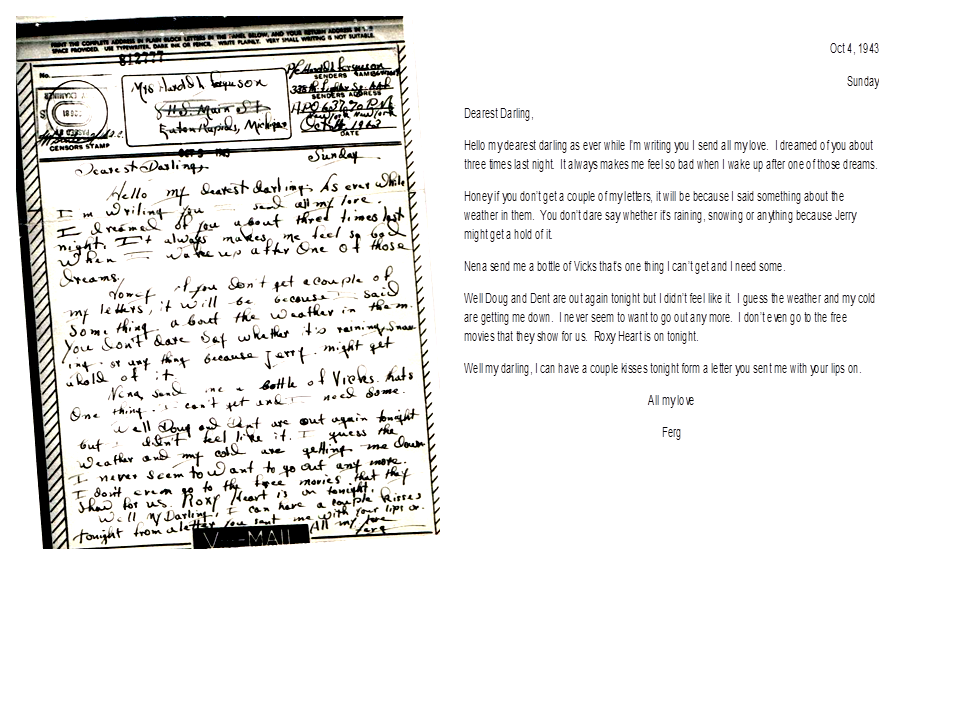 PRINT THE COMPLETE ADDRESS IN PLAIN BLOCK LETTERS IN THE PANEL BELOW, AND YOUR RETURN ADDRESS IN
SPACE PROVIDED. USE TYPEWRITER, DARK INK OR PENCIL. WRITE PLAINLY. VERY SMALL WRITING IS NOT SUITABLE.
No.
CENSORS STAMP
Mrs Harold L Ferguson
Main St
Eaton Rapids, Michigan
Ferguson
SENDERS NAME
SENDERS ADDRESS
APO 637
New York New York
DATE
Dearest Darling, Sunday
Hello my dearest darling As ever while
I'm writing you send all my love.
I dreamed of you about three times last
night. It always makes me feel so bad
when I wake up after one of those
dreams.
Honey if you don't get a couple of
my letters, it will be because I said
something about the weather in them.
You don't dare say whether it's raining, snow
ing or any thing because Jerry might get
ahold of it.
Nena send me a bottle of Vicks. thats
one thing I can't get and I need some.
Well Doug and Dent are out again tonight
but I didn't feel like it. I guess the
weather and my cold are getting me down
I never seem to want to go out any more.
I don't even go to the free movies that they
show for us. Roxy Heart is on tonight.
Well my Darling, I can have a couple kisses
tonight from a letter you sent me with your lips on.
All my love
Ferg
V-MAIL
Oct 4, 1943
Sunday
Dearest Darling,
Hello my dearest darling as ever while I'm writing you I send all my love. I dreamed of you about
three times last night. It always makes me feel so bad when I wake up after one of those dreams.
Honey if you don't get a couple of my letters, it will be because I said something about the
weather in them. You don't dare say whether it's raining, snowing or anything because Jerry
might get a hold of it.
Nena send me a bottle of Vicks that's one thing I can't get and I need some.
Well Doug and Dent are out again tonight but I didn't feel like it. I guess the weather and my cold
are getting me down. I never seem to want to go out any more. I don't even go to the free
movies that they show for us. Roxy Heart is on tonight.
Well my darling, I can have a couple kisses tonight form a letter you sent me with your lips on.
All my love
Ferg